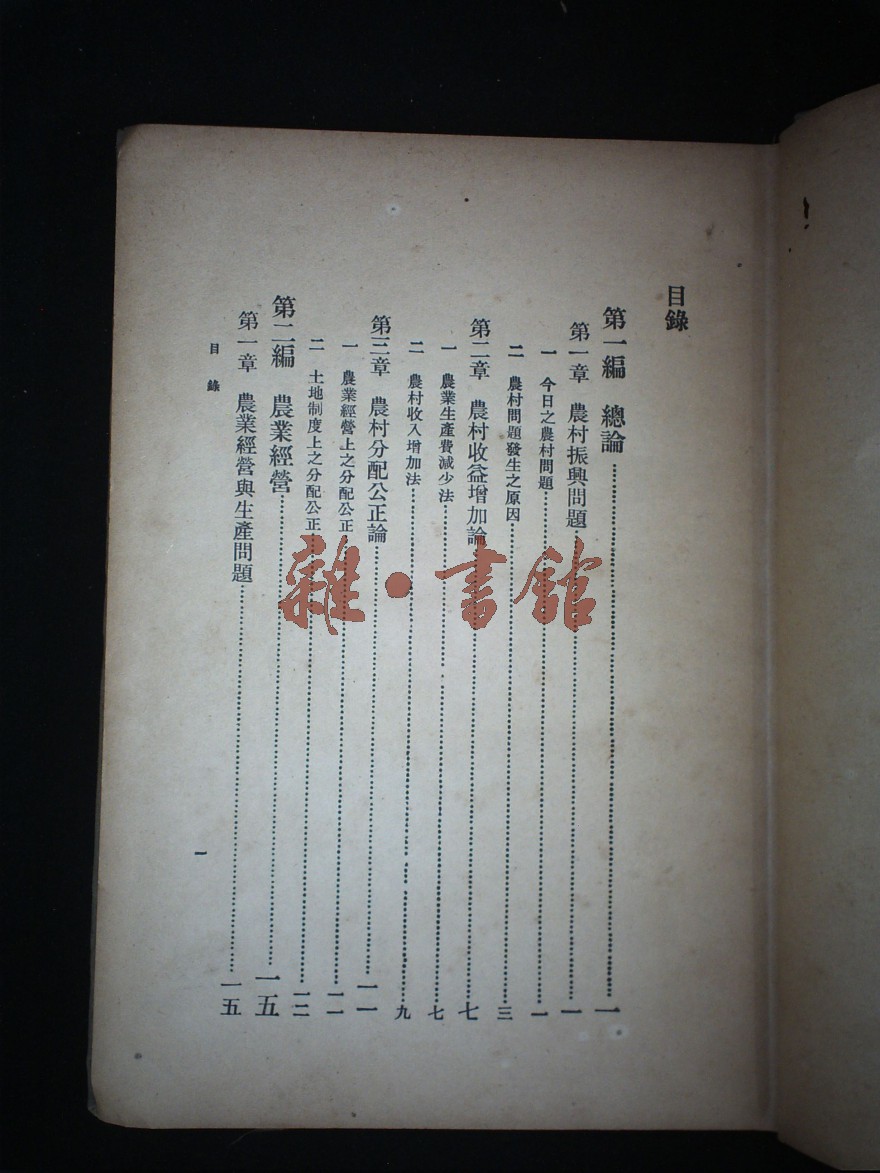 目錄
第一編　總論……一
第一章　農村振興問題……一
一　今日之農村問題……一
二　農村問題發生之原因……三
第二章　農村收益增加論……七
一　農業生產費減少法……七
二　農村收入增加法……九
第三章　農村分配公正論……一一
一　農業經營上之分配公正……一一
二　土地制度上之分配公正……一二
第二編　農業經營……一五
第一章　農業經營與生產問題……一五
目錄
一
雜·書館